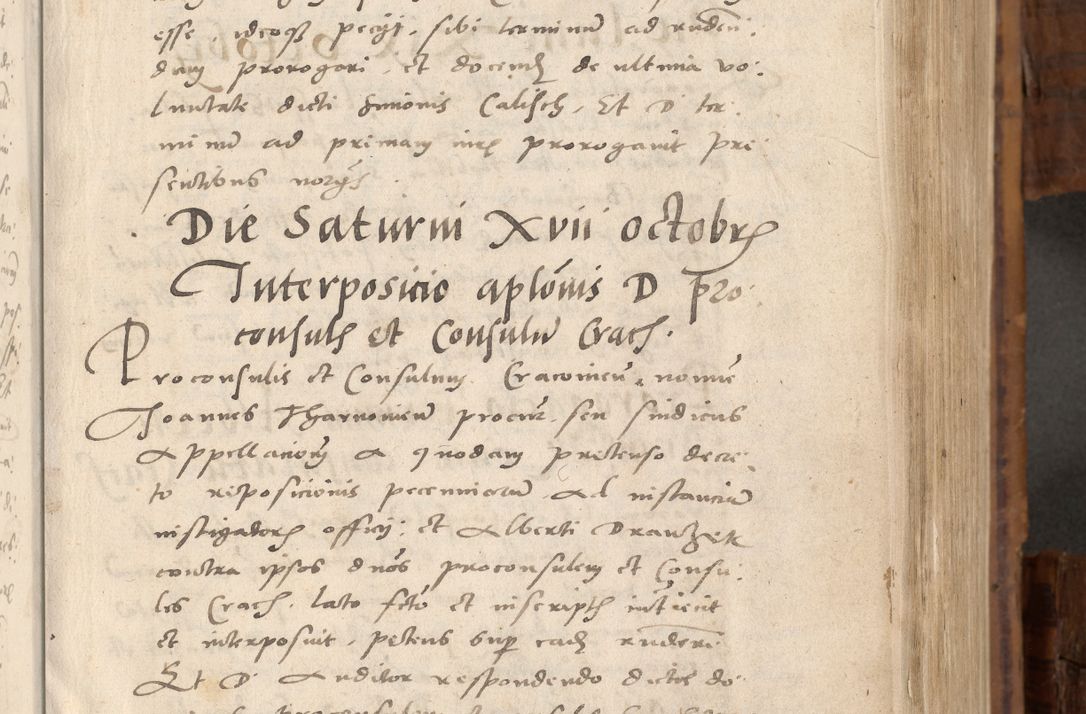 esse, ideoqȝ pecijt, sibi terminum ad ruden:
dum prorogari, et docendȝ de ultima vo:
luntate dicti Simonis Calisch. Et D ter:
minū ad primam iurẹ prorogavit Pre
sentibus norijs
Die Saturni Xvii octobrꝭ
Interposicio aplōnis D Pro:
consulꝭ et Consulū Crach.
Proconsulis et Consulum Cracovieñ nomine
Joannes Tharnovieñ procur. seu sindicus
Appellacionē a quodam pretenso decre:
to reposicionis pecuniarū Ad instanciam
instigatorꝭ officij: et Alberti Dranzek
contra ipsos dnōs proconsulem et Consu:
les Crach. lato
et interposuit. petens sup eadȝ
Et D. Auditor respondendo dictos do: